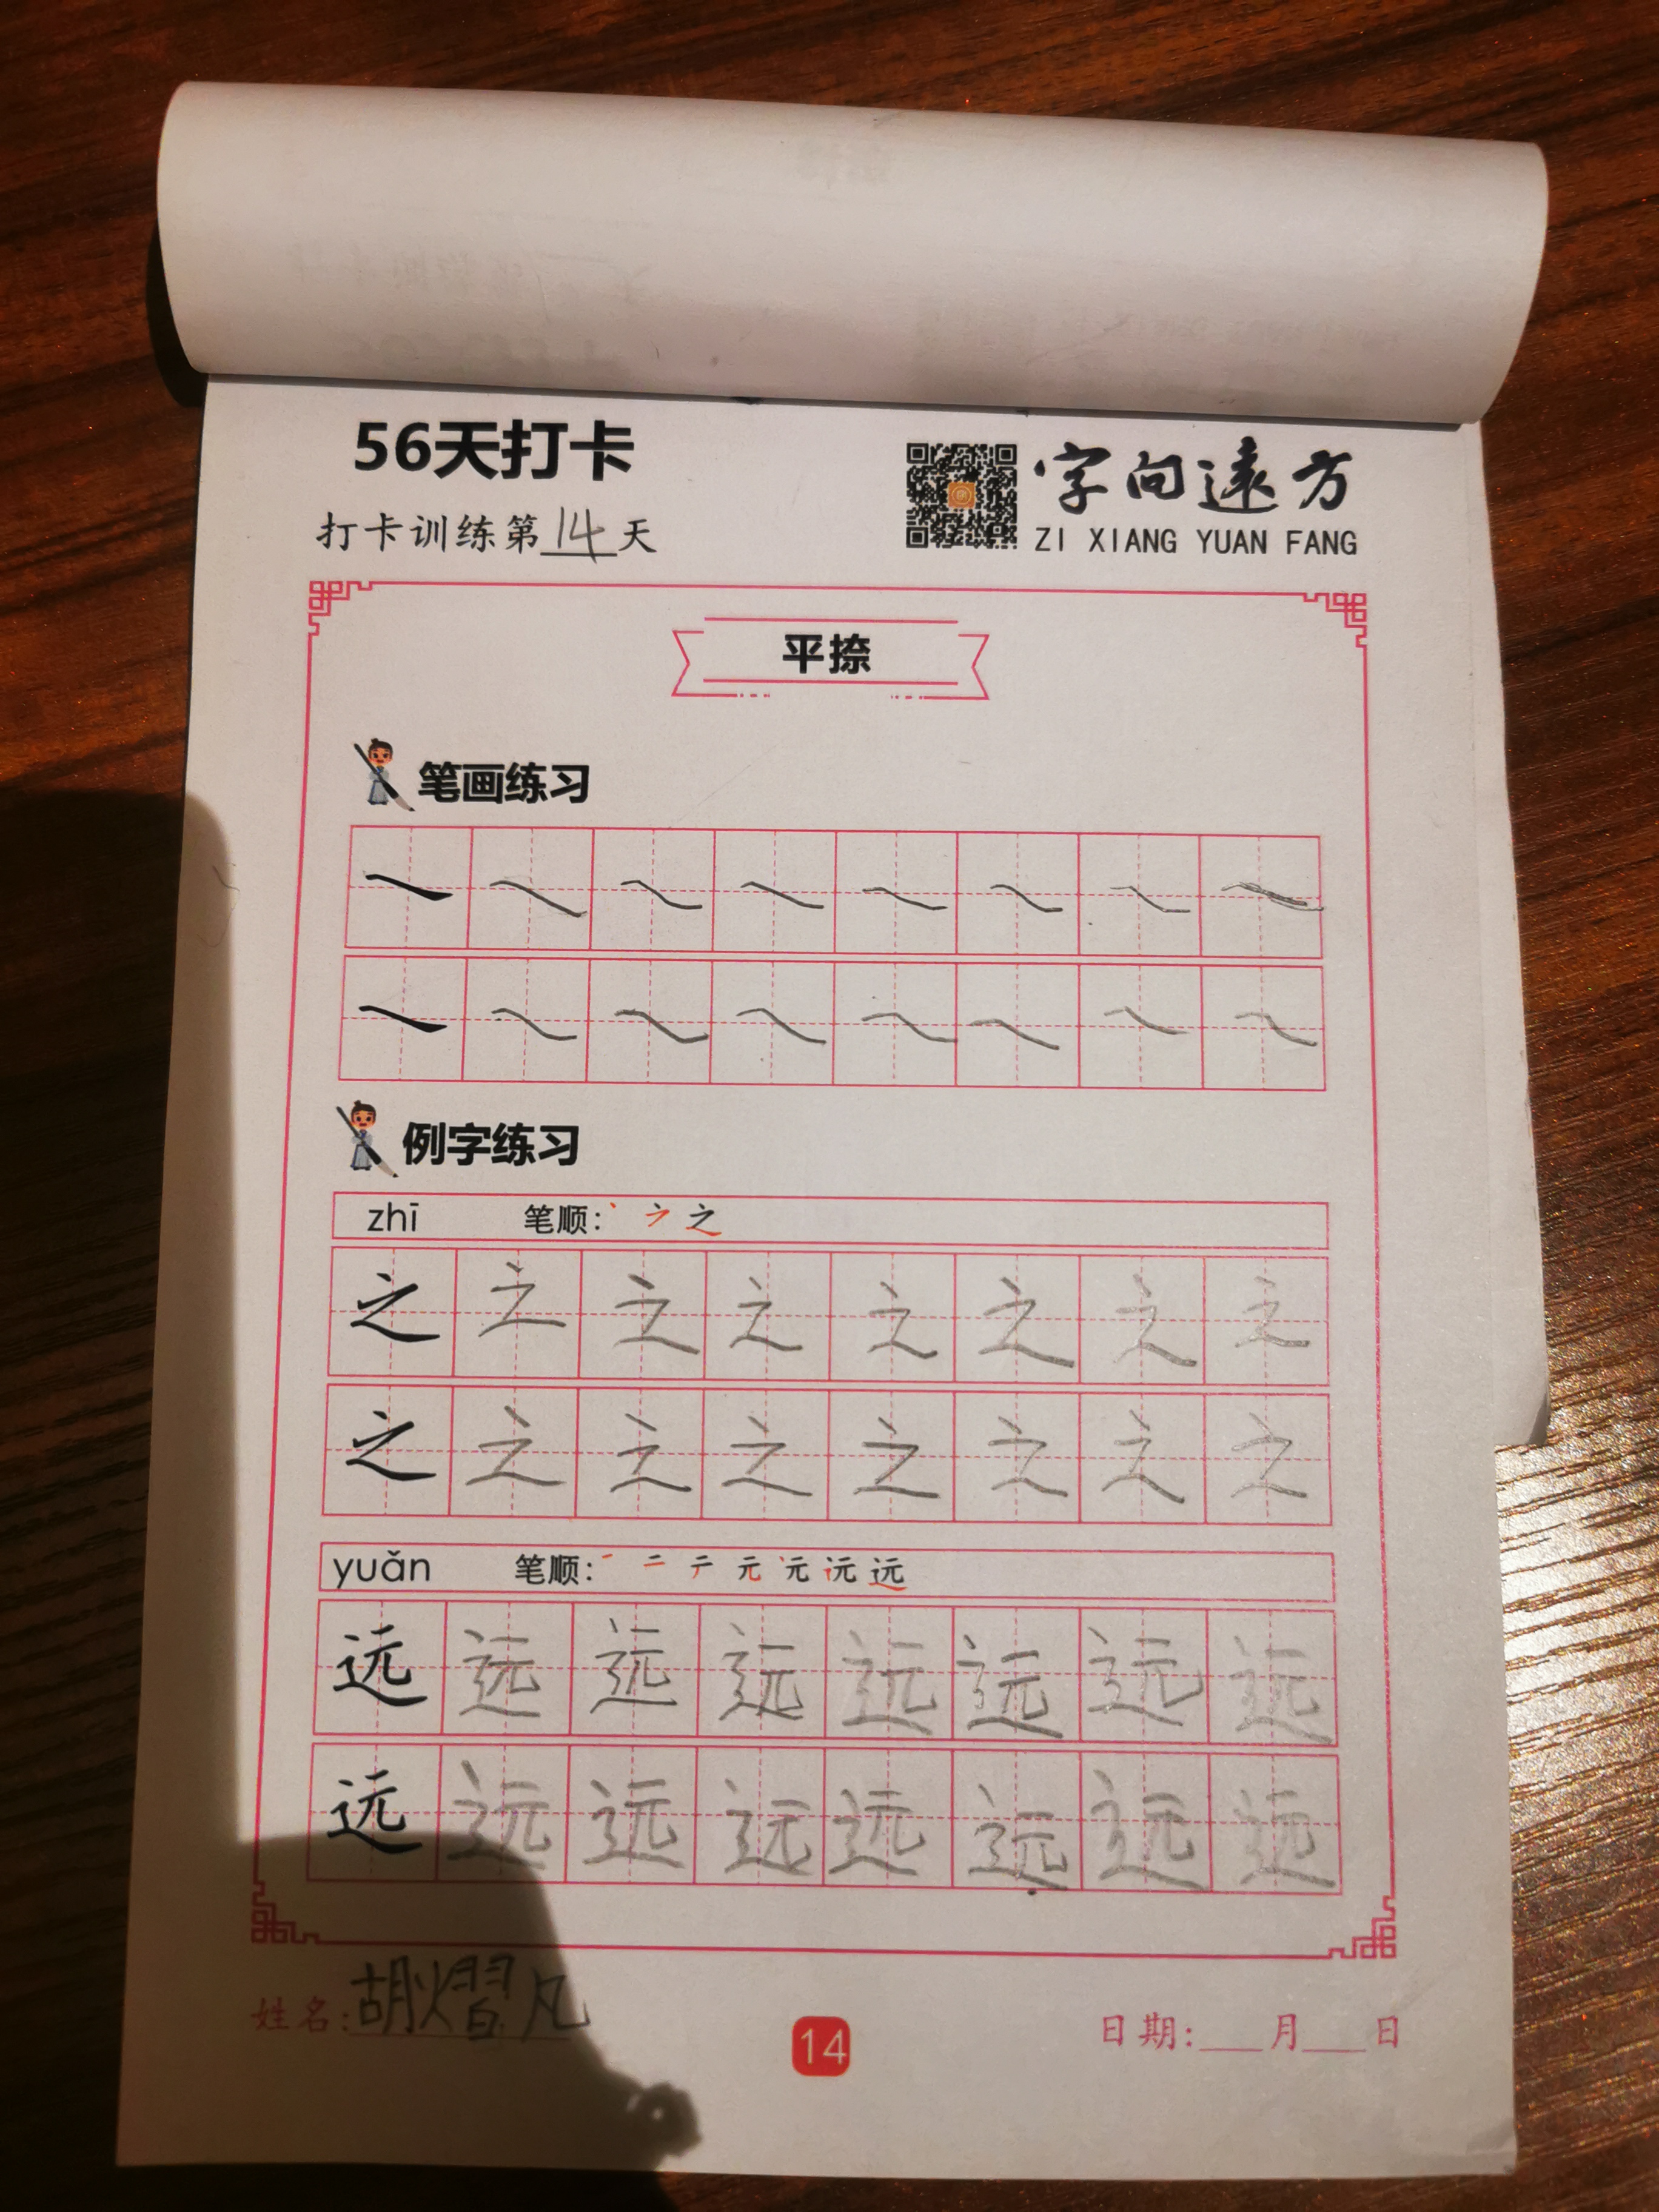 56天打卡
字向遠方
打卡训练第14天
ZI XIANG YUAN FANG
平捺
笔画练习
例字练习
zhī 笔顺: 之
之 之 之 之 之 之 之 之
之 之 之 之 之 之 之 之
yuǎn 笔顺: 一 二 テ 元 远
远 远 远 远 远 远 远 远
远 远 远 远 远 远 远 远
姓名: 胡熠凡
14
日期:___月___日